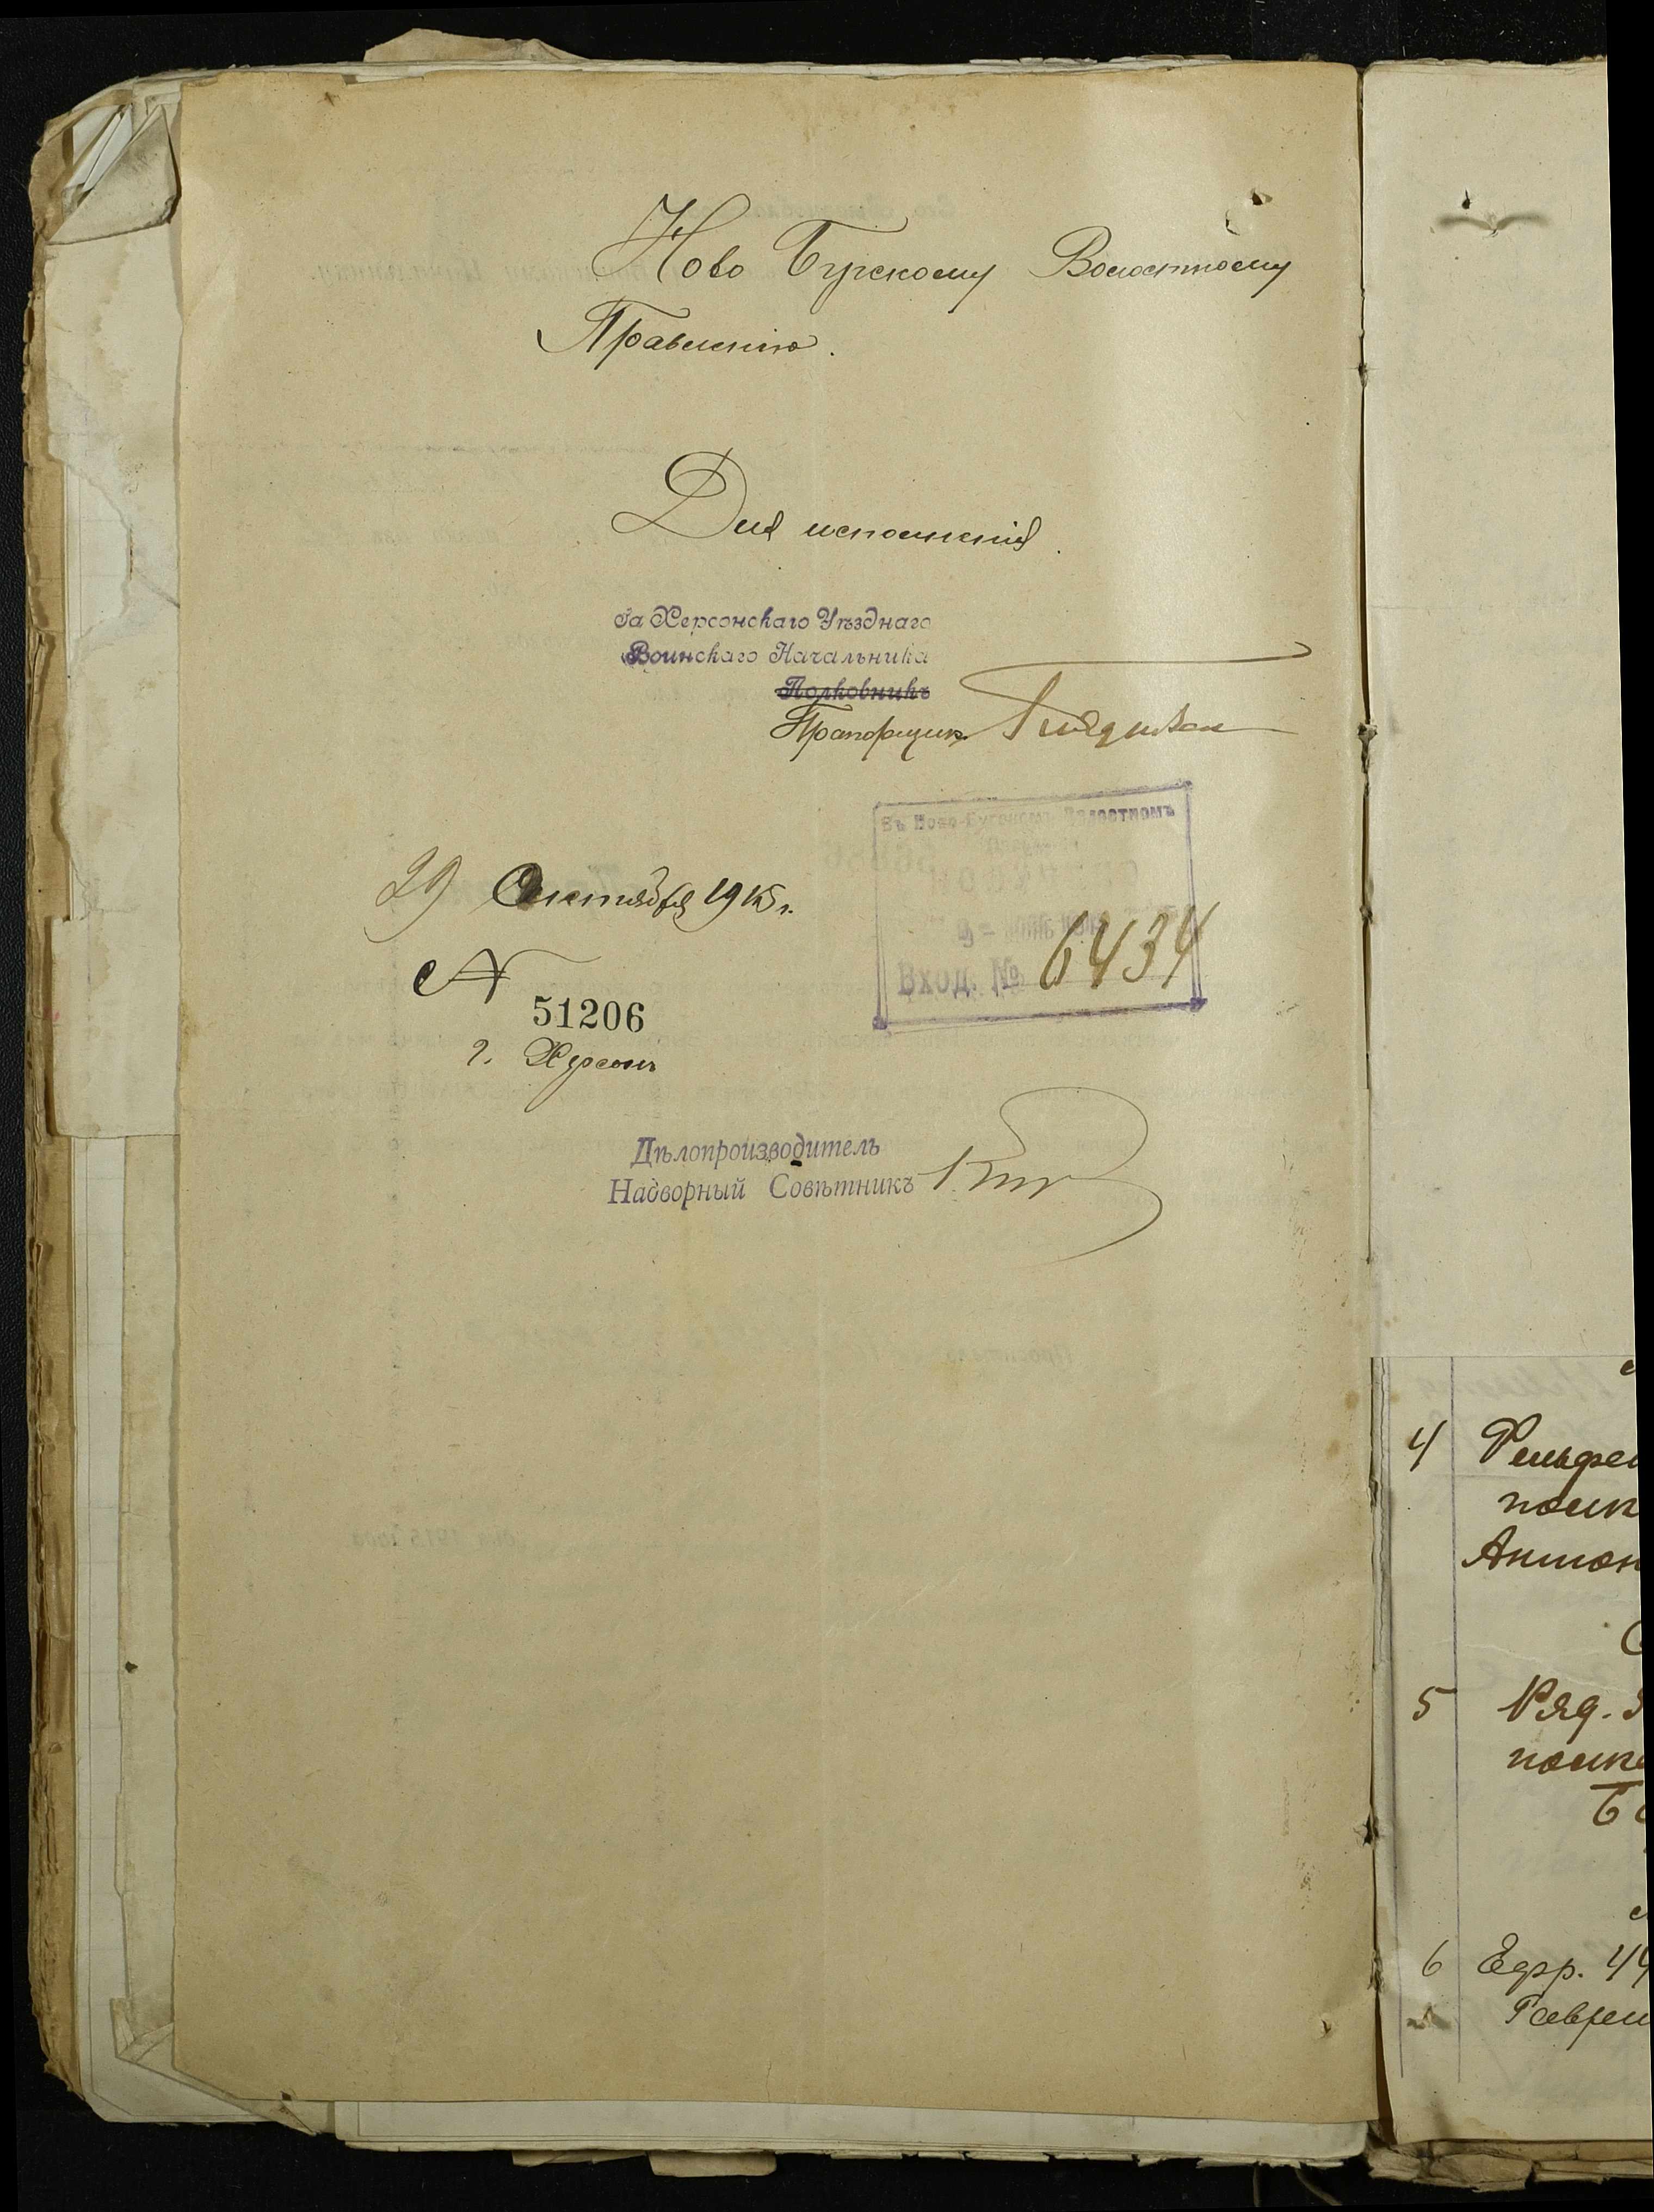 Ново Бугскому Волостному
Правленію.
Для исполненія.
За Херсонскаго Уѣзднаго
Воинскаго Начальника
Полковникъ
Прапорщикъ
Въ Ново-Бугскомъ Волостномъ
Вход. № 6434
29 Октября 1915 г.
№
51206
г. Херсонъ
Дѣлопроизводитель
Надворный Совѣтникъ
4
полк
Антон
5 Ряд.
полка
6 Ефр. 44
Гаврил